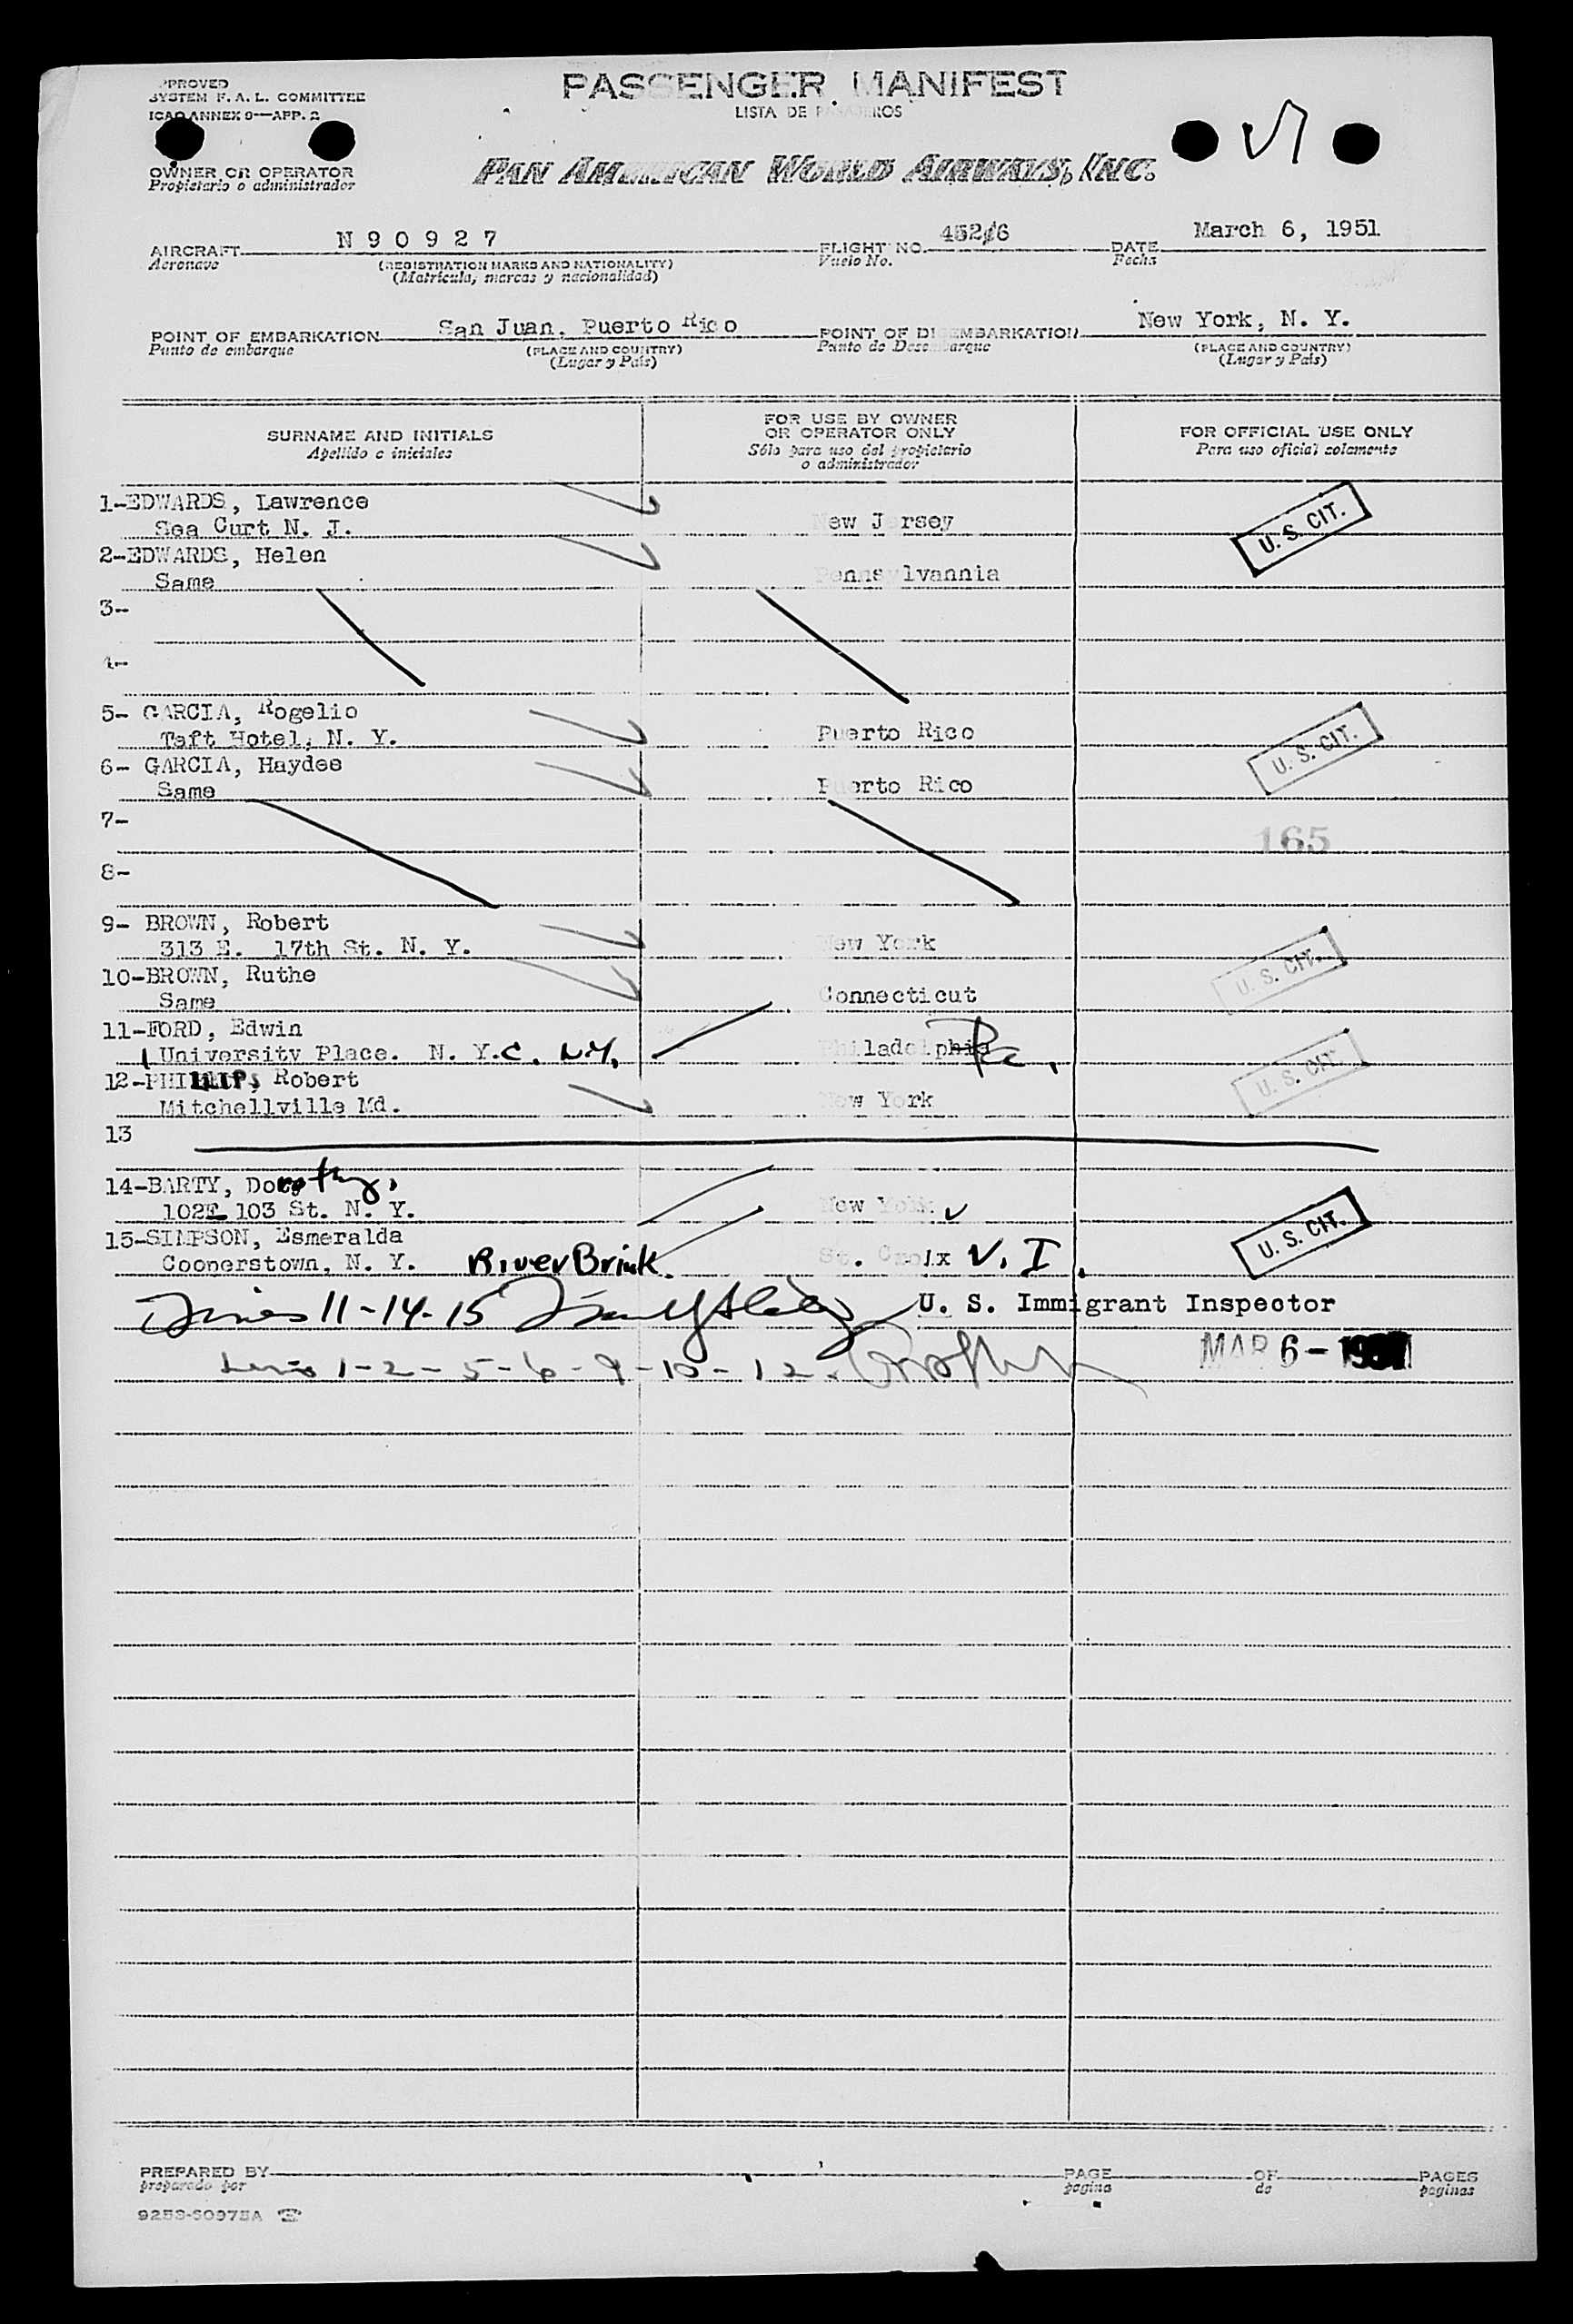 PASSENGER MANIFEST
LISTA DE PASAJEROS
APPROVED
SYSTEM F. A. L. COMMITTEE
ICAO ANNEX 9—APP. 2
OWNER OR OPERATOR
Propietario o administrador
PAN AMERICAN WORLD AIRWAYS, INC.
AIRCRAFT N 9 0 9 2 7 FLIGHT NO. 452/6 DATE March 6, 1951
Aeronave (REGISTRATION MARKS AND NATIONALITY) Vuelo No. Fecha
(Matrícula, marcas y nacionalidad)
POINT OF EMBARKATION San Juan, Puerto Rico POINT OF DISEMBARKATION New York, N. Y.
Punto de embarque (PLACE AND COUNTRY) Punto de Desembarque (PLACE AND COUNTRY)
(Lugar y País) (Lugar y País)
SURNAME AND INITIALS FOR USE BY OWNER OR OPERATOR ONLY FOR OFFICIAL USE ONLY
Apellido e iniciales Sólo para uso del propietario o administrador Para uso oficial solamente
1-EDWARDS, Lawrence
Sea Curt N. J. New Jersey U. S. CIT.
2-EDWARDS, Helen
Same Pennsylvannia
3-
4-
5- GARCIA, Rogelio
Taft Hotel, N. Y. Puerto Rico U. S. CIT.
6- GARCIA, Haydee
Same Puerto Rico
7-
165
8-
9- BROWN, Robert
313 E. 17th St. N. Y. New York U. S. CIT.
10-BROWN, Ruthe
Same Connecticut
11-FORD, Edwin
1 University Place. N. Y.C. N.Y. Philadelphia Pa. U. S. CIT.
12-PHILLIPS, Robert
Mitchellville Md. New York
13
14-BARTY, Dorothy.
102E 103 St. N. Y. New York
15-SIMPSON, Esmeralda
Cooperstown, N. Y. River Brink. St. Croix V. I. U. S. CIT.
Lines 11-14-15 U. S. Immigrant Inspector
Lines 1-2-5-6-9-10-12. MAR 6-1951
PREPARED BY PAGE OF PAGES
preparado por pagina de paginas